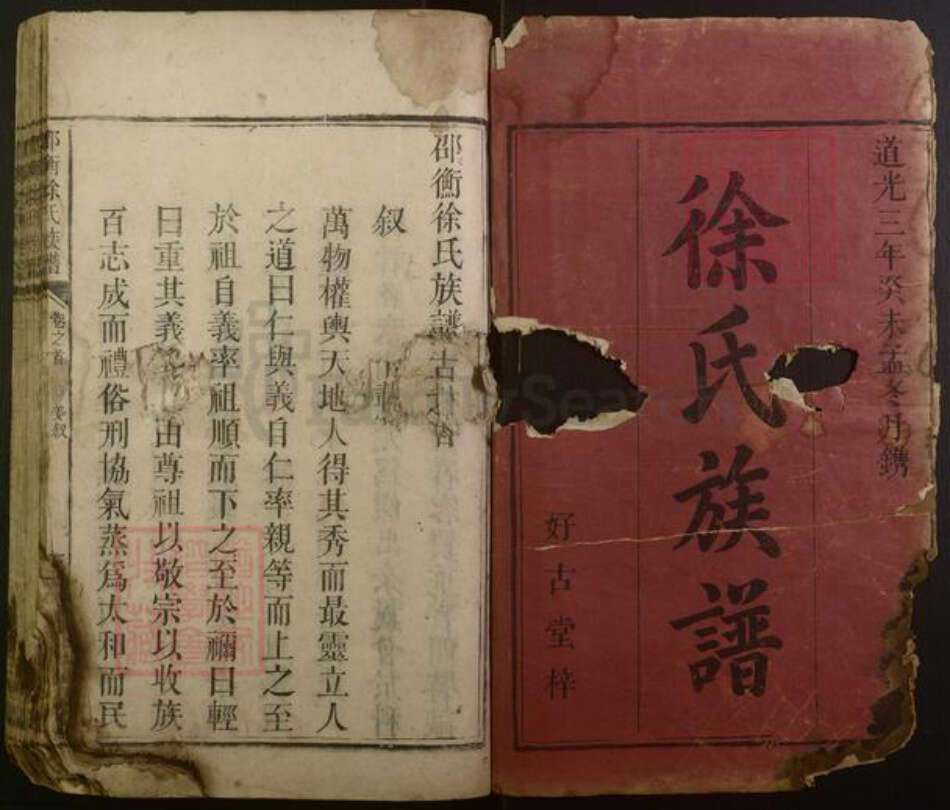 道光三年癸未孟冬月鐫
徐氏族譜
好古堂梓
邵衡徐氏族譜卷之首
叙
萬物權輿天地人得其秀而最靈立人
之道曰仁與義自仁率親等而上之至
於祖自義率祖順而下之至於禰曰輕
曰重其義 由尊祖以敬宗以收族
百志成而禮俗刑協氣蒸為太和而民
邵衡徐氏族譜
卷之首
叙